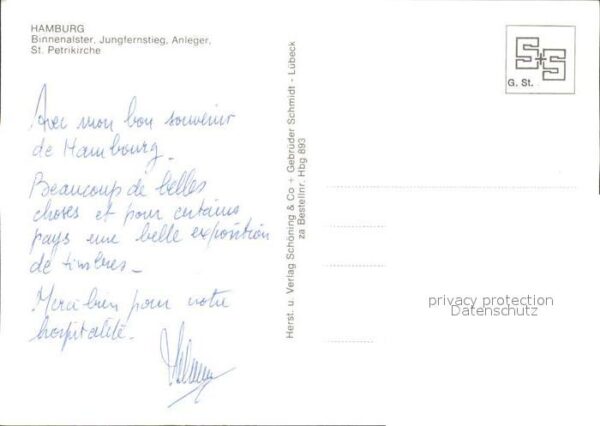 HAMBURG
Binnenalster, Jungfernstieg, Anleger,
St. Petrikirche
Avec mon bon souvenir
de Hambourg_
Beaucoup de belles
choses et pour certains
pays une belle exposition
de timbres_
Merci bien pour votre
hospitalité.
Herst. u. Verlag Schöning & Co + Gebrüder Schmidt - Lübeck
za Bestellnr. Hbg 893
S+S
G. St.
privacy protection
Datenschutz